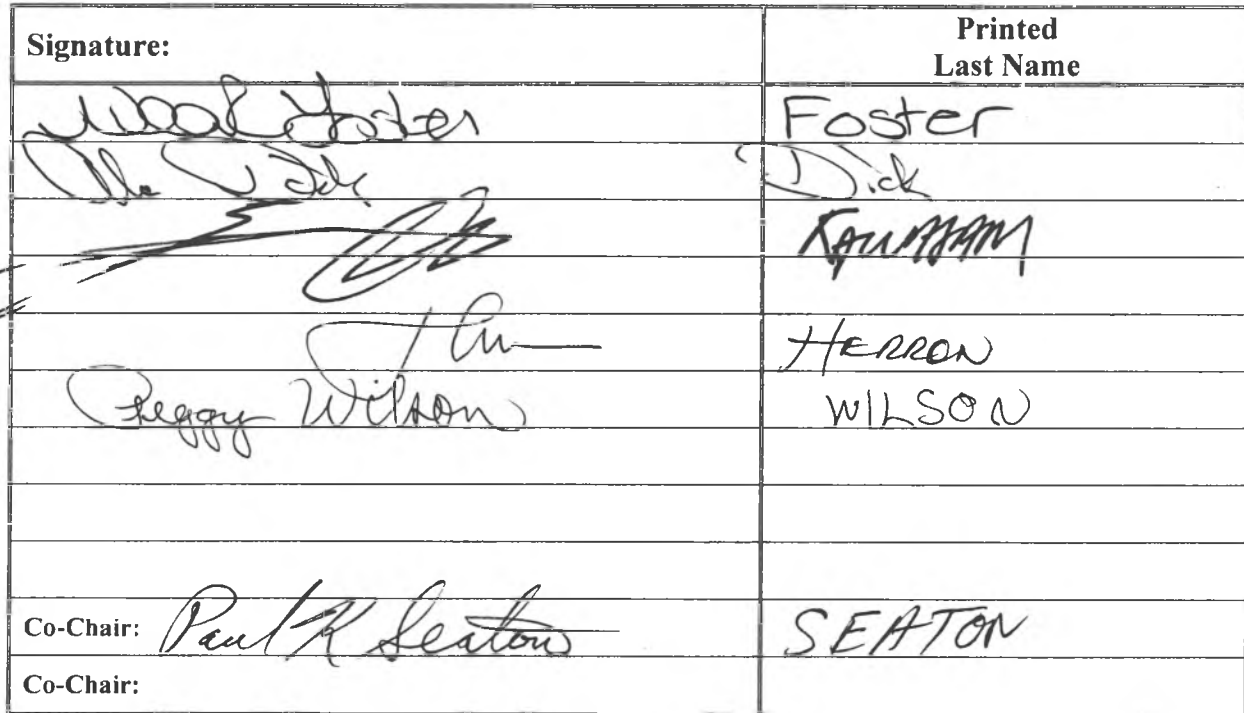 Signature: Printed
Last Name
Foster Foster
Dick Dick
HERRON
Peggy Wilson WILSON
Co-Chair: Paul K Seaton SEATON
Co-Chair: